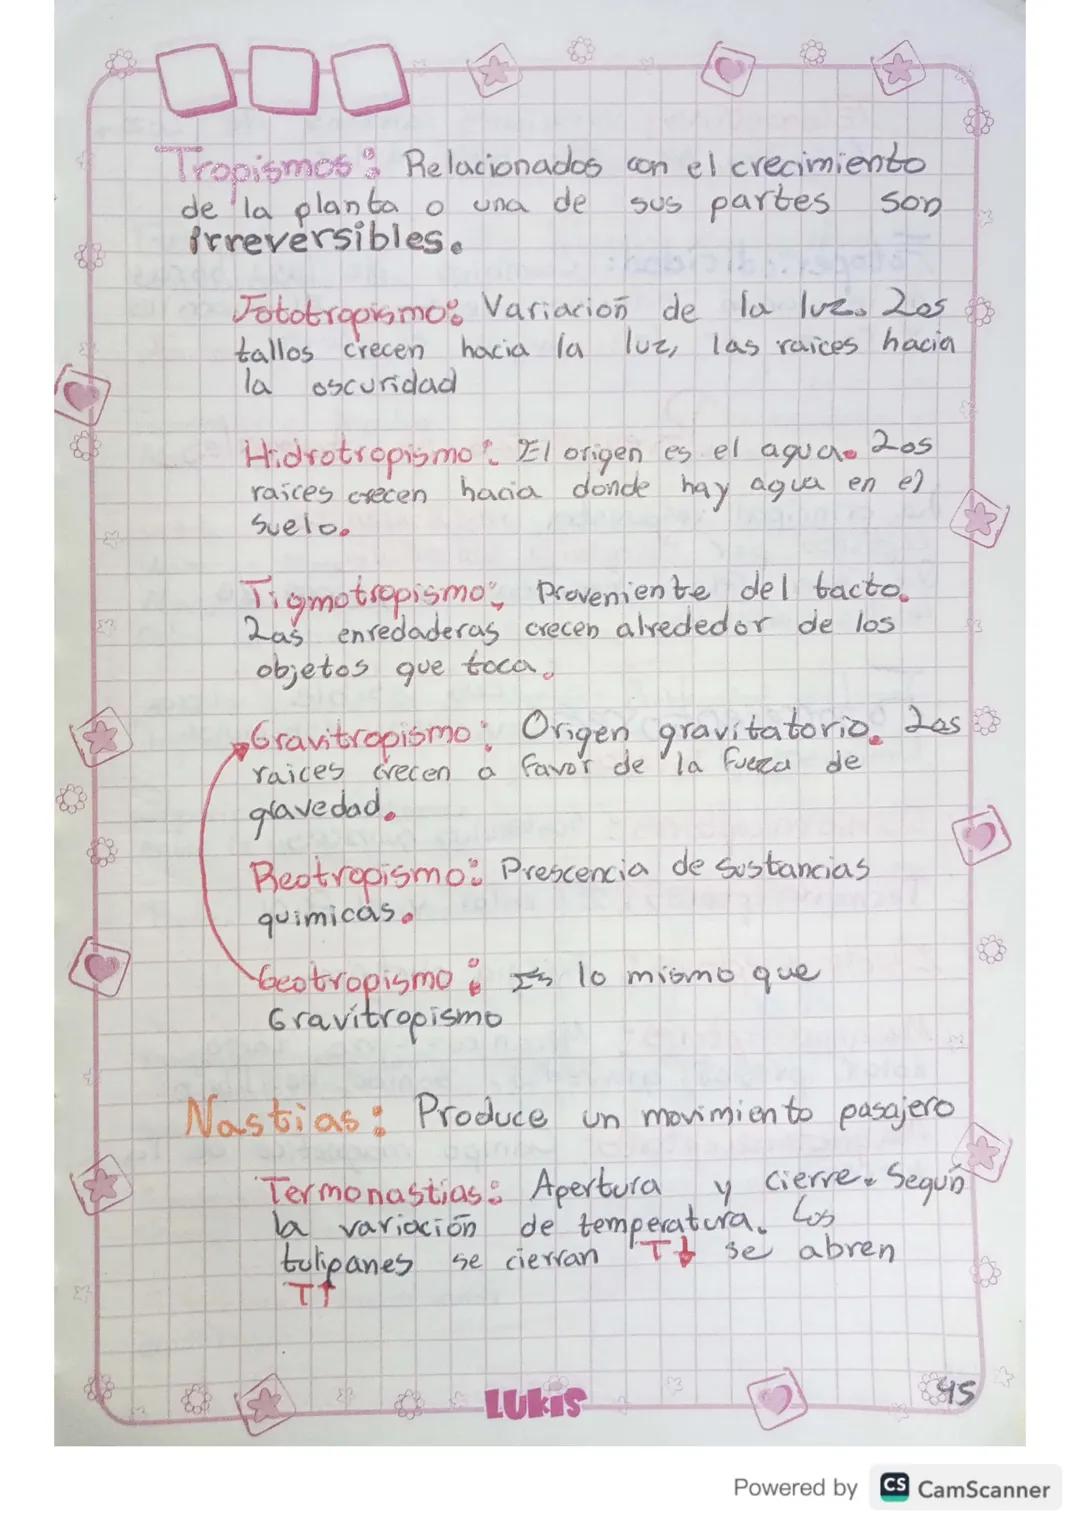 Tropismos: Relacionados con el crecimiento
de la planta o una de sus partes son
irreversibles.
Fototropismo: Variación de la luz. Los
tallos crecen hacia la luz, las raices hacia
la oscuridad
Hidrotropismo: El origen es el agua. Los
raices crecen hacia donde hay agua en el
suelo.
Tigmotropismo: Proveniente del tacto.
Las enredaderas crecen alrededor de los
objetos que toca.
Gravitropismo: Origen gravitatorio. Las
raices crecen a favor de la fuerza de
gravedad.
Reotropismo: Prescencia de sustancias
quimicas.
Geotropismo: Es lo mismo que
Gravitropismo
Nastias: Produce un movimiento pasajero
Termonastias: Apertura y cierre. Según
la variación de temperatura. Los
tulipanes se cierran T↓ se abren
T↑
LUKIS
45
Powered by CS CamScanner